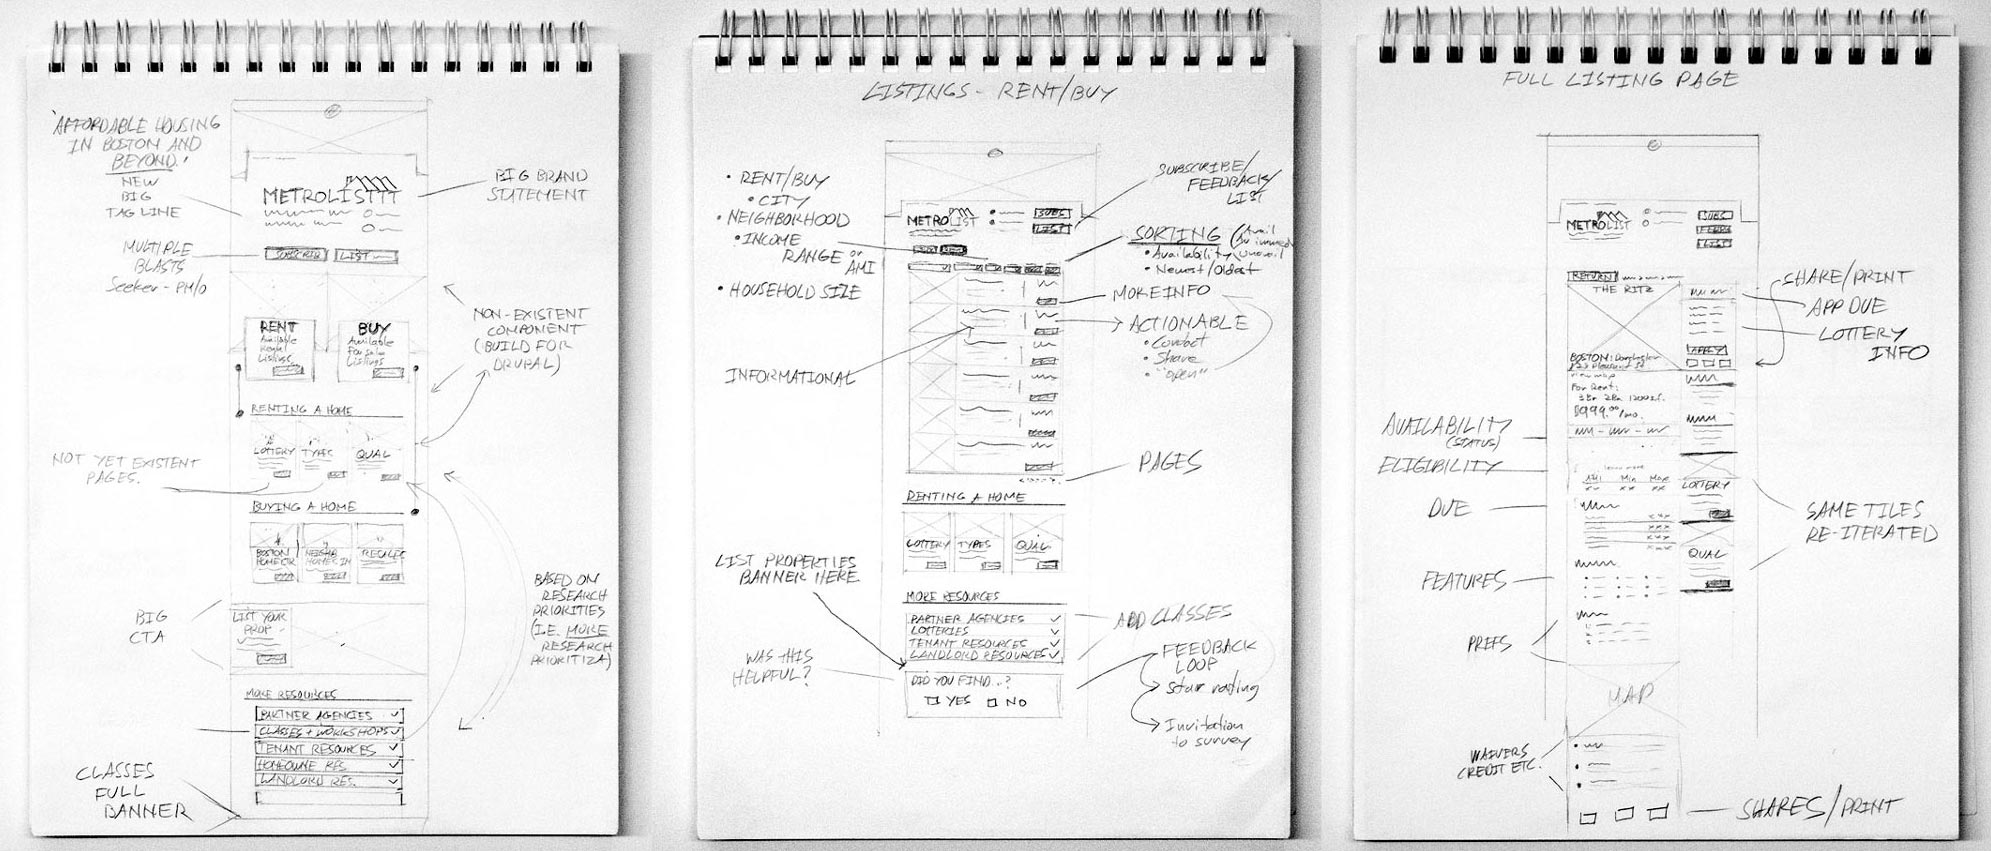 'AFFORDABLE HOUSING
IN BOSTON AND
BEYOND.'
NEW
BIG
TAG LINE
MULTIPLE
BLASTS
Seeker - PM/O
METROLISTTT
BIG BRAND
STATEMENT
LIST
RENT
Available
Rental
Listings
BUY
Available
For sale
Listings
NON-EXISTENT
COMPONENT
(BUILD FOR
DRUPAL)
RENTING A HOME
LOTTERY
TYPES
QUAL
NOT YET EXISTENT
PAGES.
BUYING A HOME
BOSTON
HOME CTR
BIG
CTA
LIST YOUR
PROP
BASED ON
RESEARCH
PRIORITIES
(I.E. MORE
RESEARCH
PRIORITIZA)
MORE RESOURCES
PARTNER AGENCIES
CLASSES + WORKSHOPS
TENANT RESOURCES
HOMEOWNE RES
LANDLORD RES.
CLASSES
FULL
BANNER
LISTINGS - RENT/BUY
• RENT/BUY
• CITY
• NEIGHBORHOOD
• INCOME
RANGE or
AMI
• HOUSEHOLD SIZE
SUBSCRIBE/
FEEDBACK/
LIST
METROLIST
SUBS
LIST
SORTING
• Availability
• Newest/Oldest
MORE INFO
ACTIONABLE
• Contact
• Share
• "open"
INFORMATIONAL
PAGES
RENTING A HOME
LOTTERY
TYPES
QUAL
LIST PROPERTIES
BANNER HERE
MORE RESOURCES
PARTNER AGENCIES
LOTTERIES
TENANT RESOURCES
LANDLORD RESOURCES
ADD CLASSES
WAS THIS
HELPFUL?
DID YOU FIND...?
YES NO
FEEDBACK
LOOP
Star rating
Invitation
to survey
FULL LISTING PAGE
METROLIST
SUBS
LIST
RETURN
THE RITZ
SHARE/PRINT
APP DUE
LOTTERY
INFO
APPLY
BOSTON:
view map
For Rent:
AVAILABILITY
(STATUS)
ELIGIBILITY
AMI Min Max
LOTTERY
DUE
SAME TILES
RE-ITERATED
QUAL
FEATURES
PREFS
MAP
WAIVERS
CREDIT ETC.
SHARES/PRINT